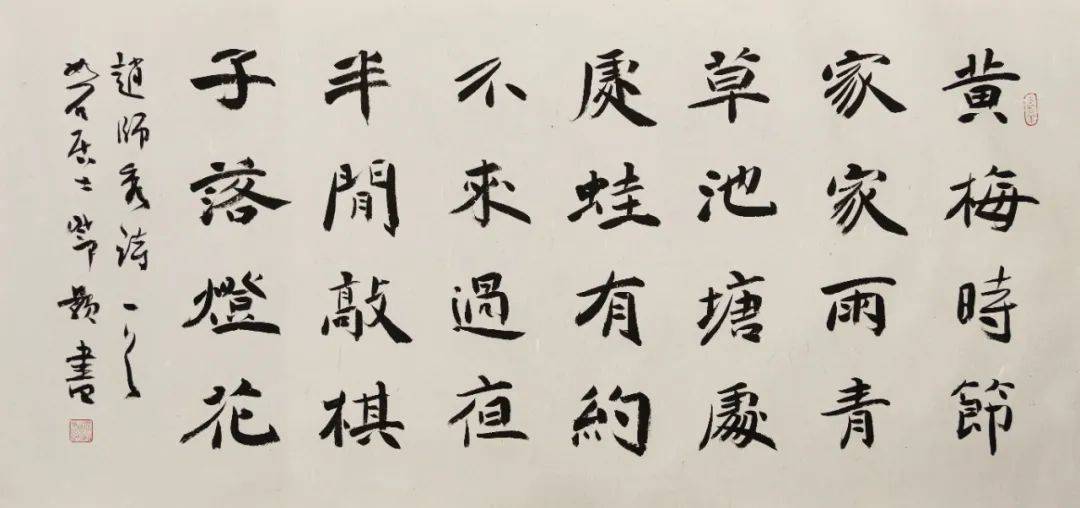 黄梅時節
家家雨青
草池塘處
處蛙有約
不來過夜
半閒敲棋
子落燈花
趙師秀詩一首
石居士書